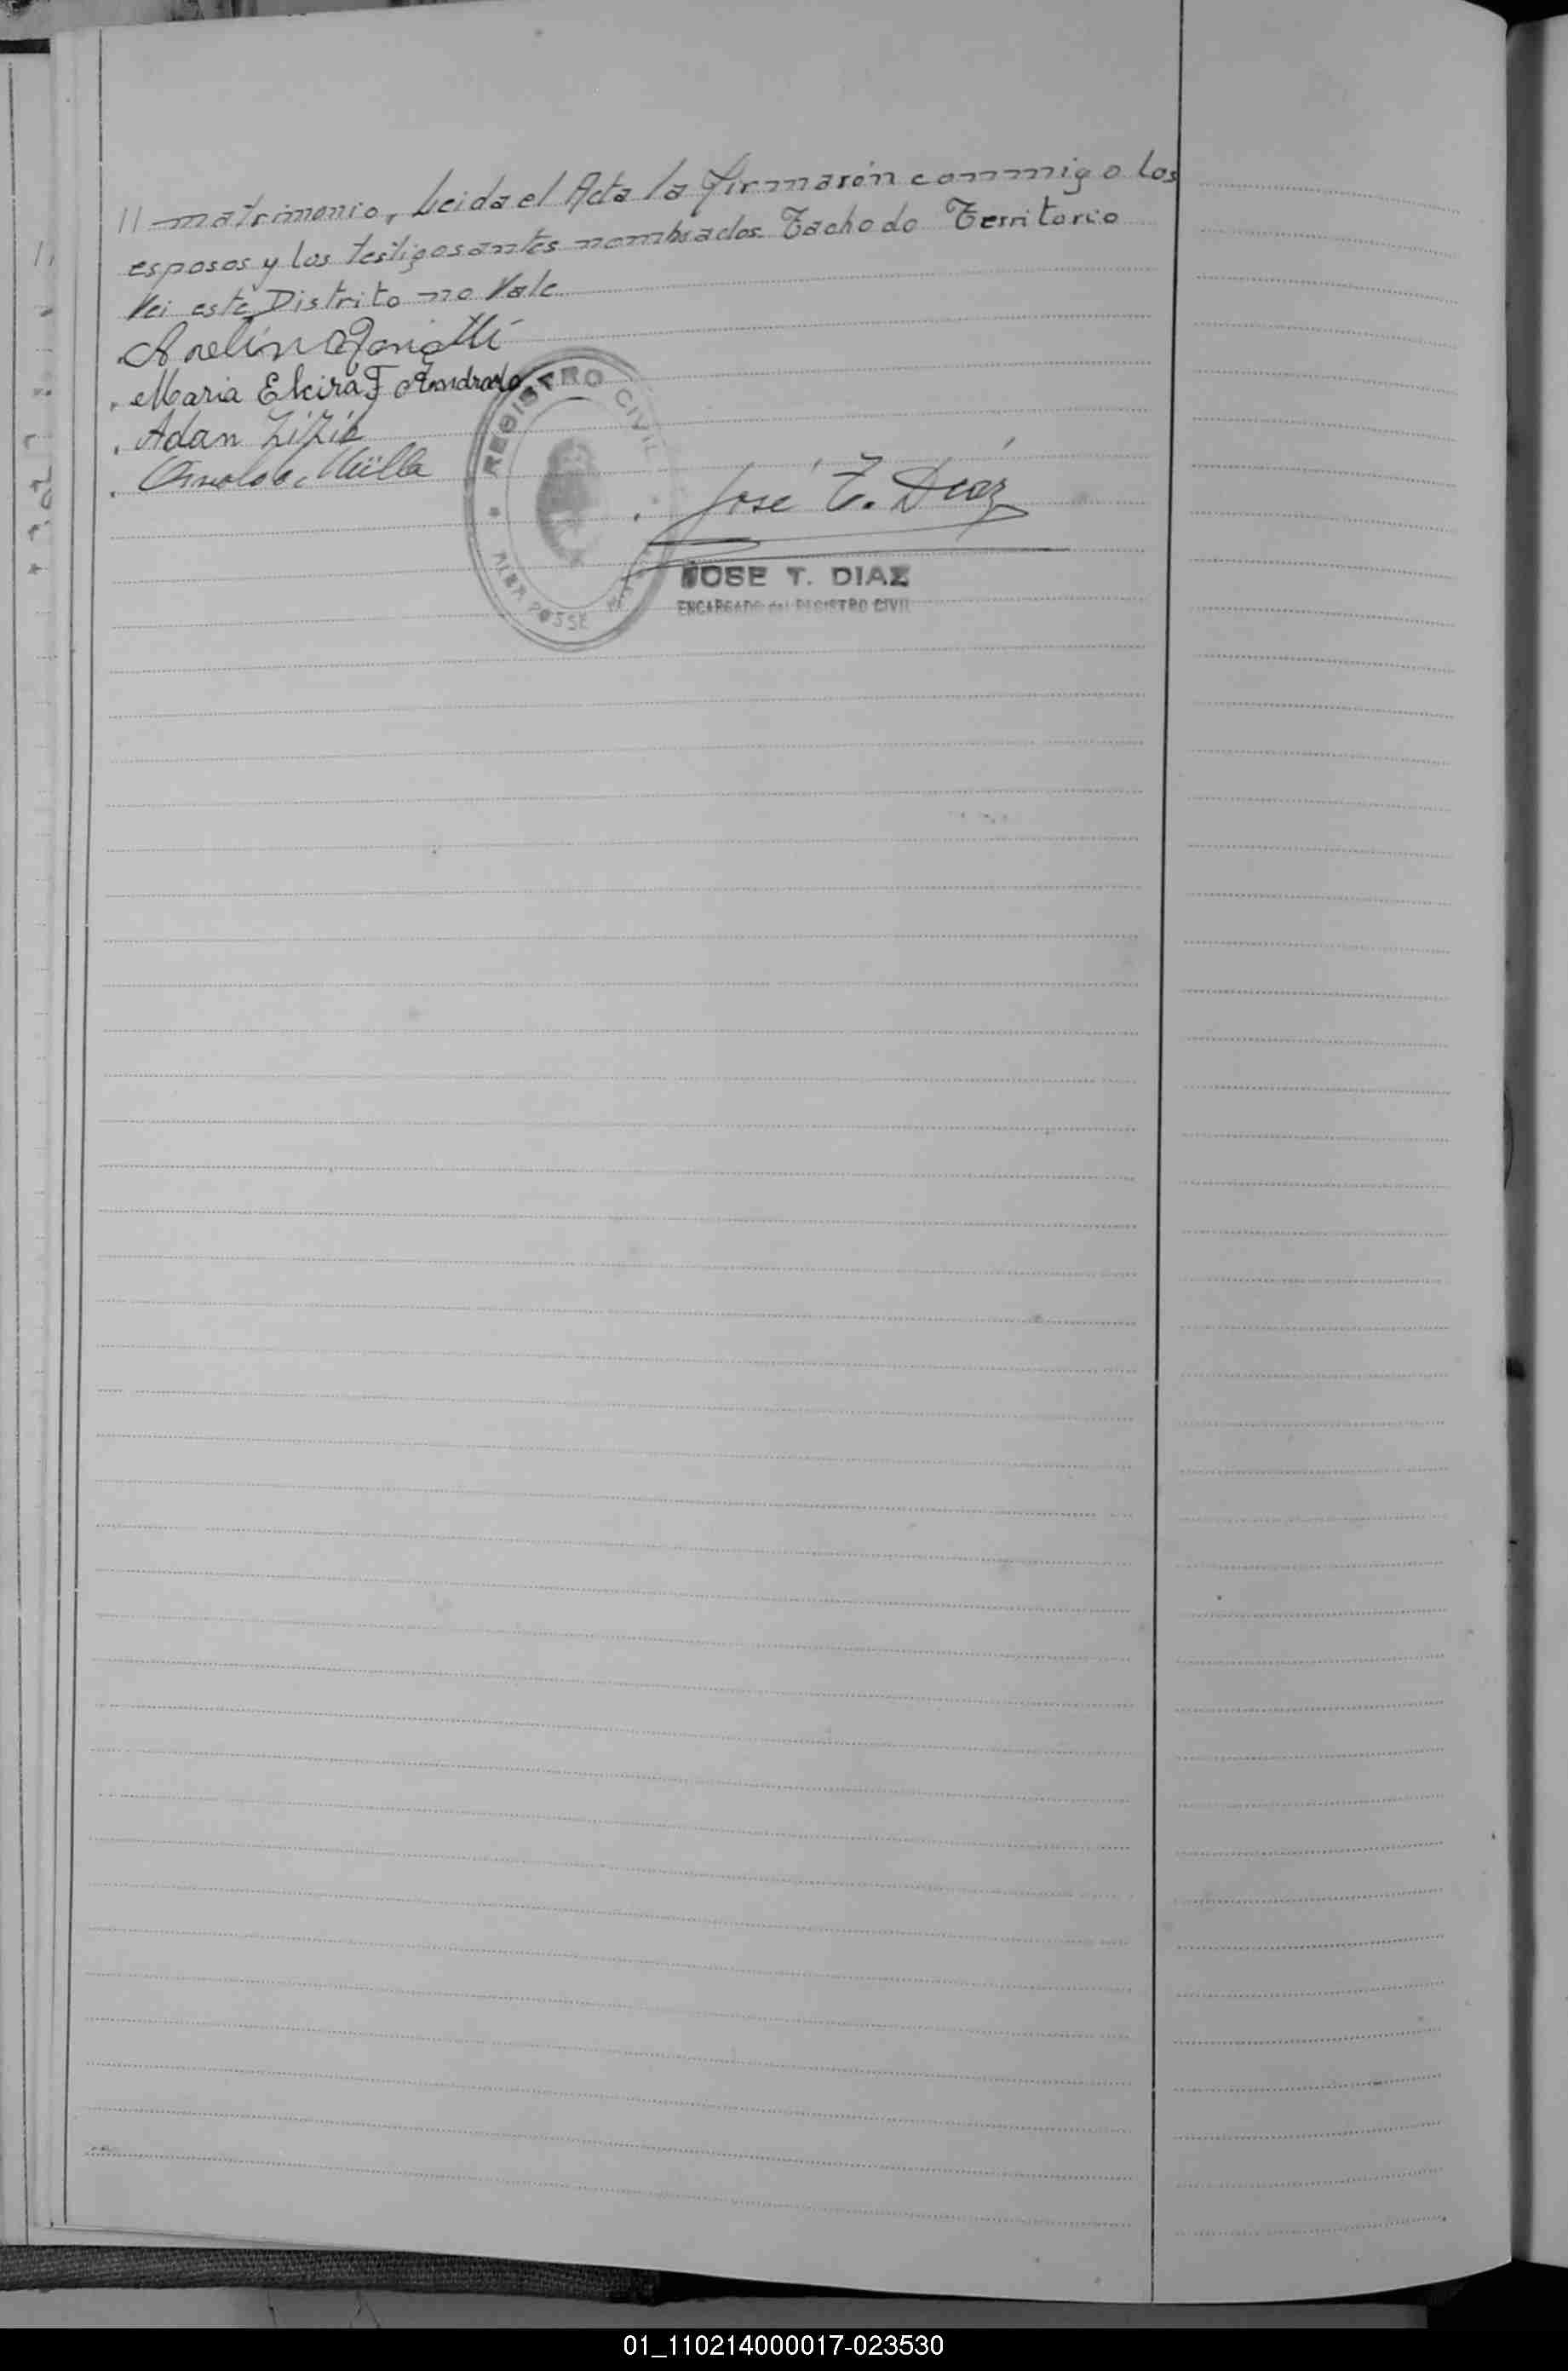 // matrimonio, Leida el Acta la firmarón conmmigo los
esposos y los testigos antes nombrados. Tachado Territorio
Vei este Distrito no Vale
Maria Elcira F. Andrade
Adan
REGISTRO CIVIL
ALBA POSSE
José T. Díaz
JOSE T. DIAZ
ENCARGADO del REGISTRO CIVIL
01_110214000017-023530